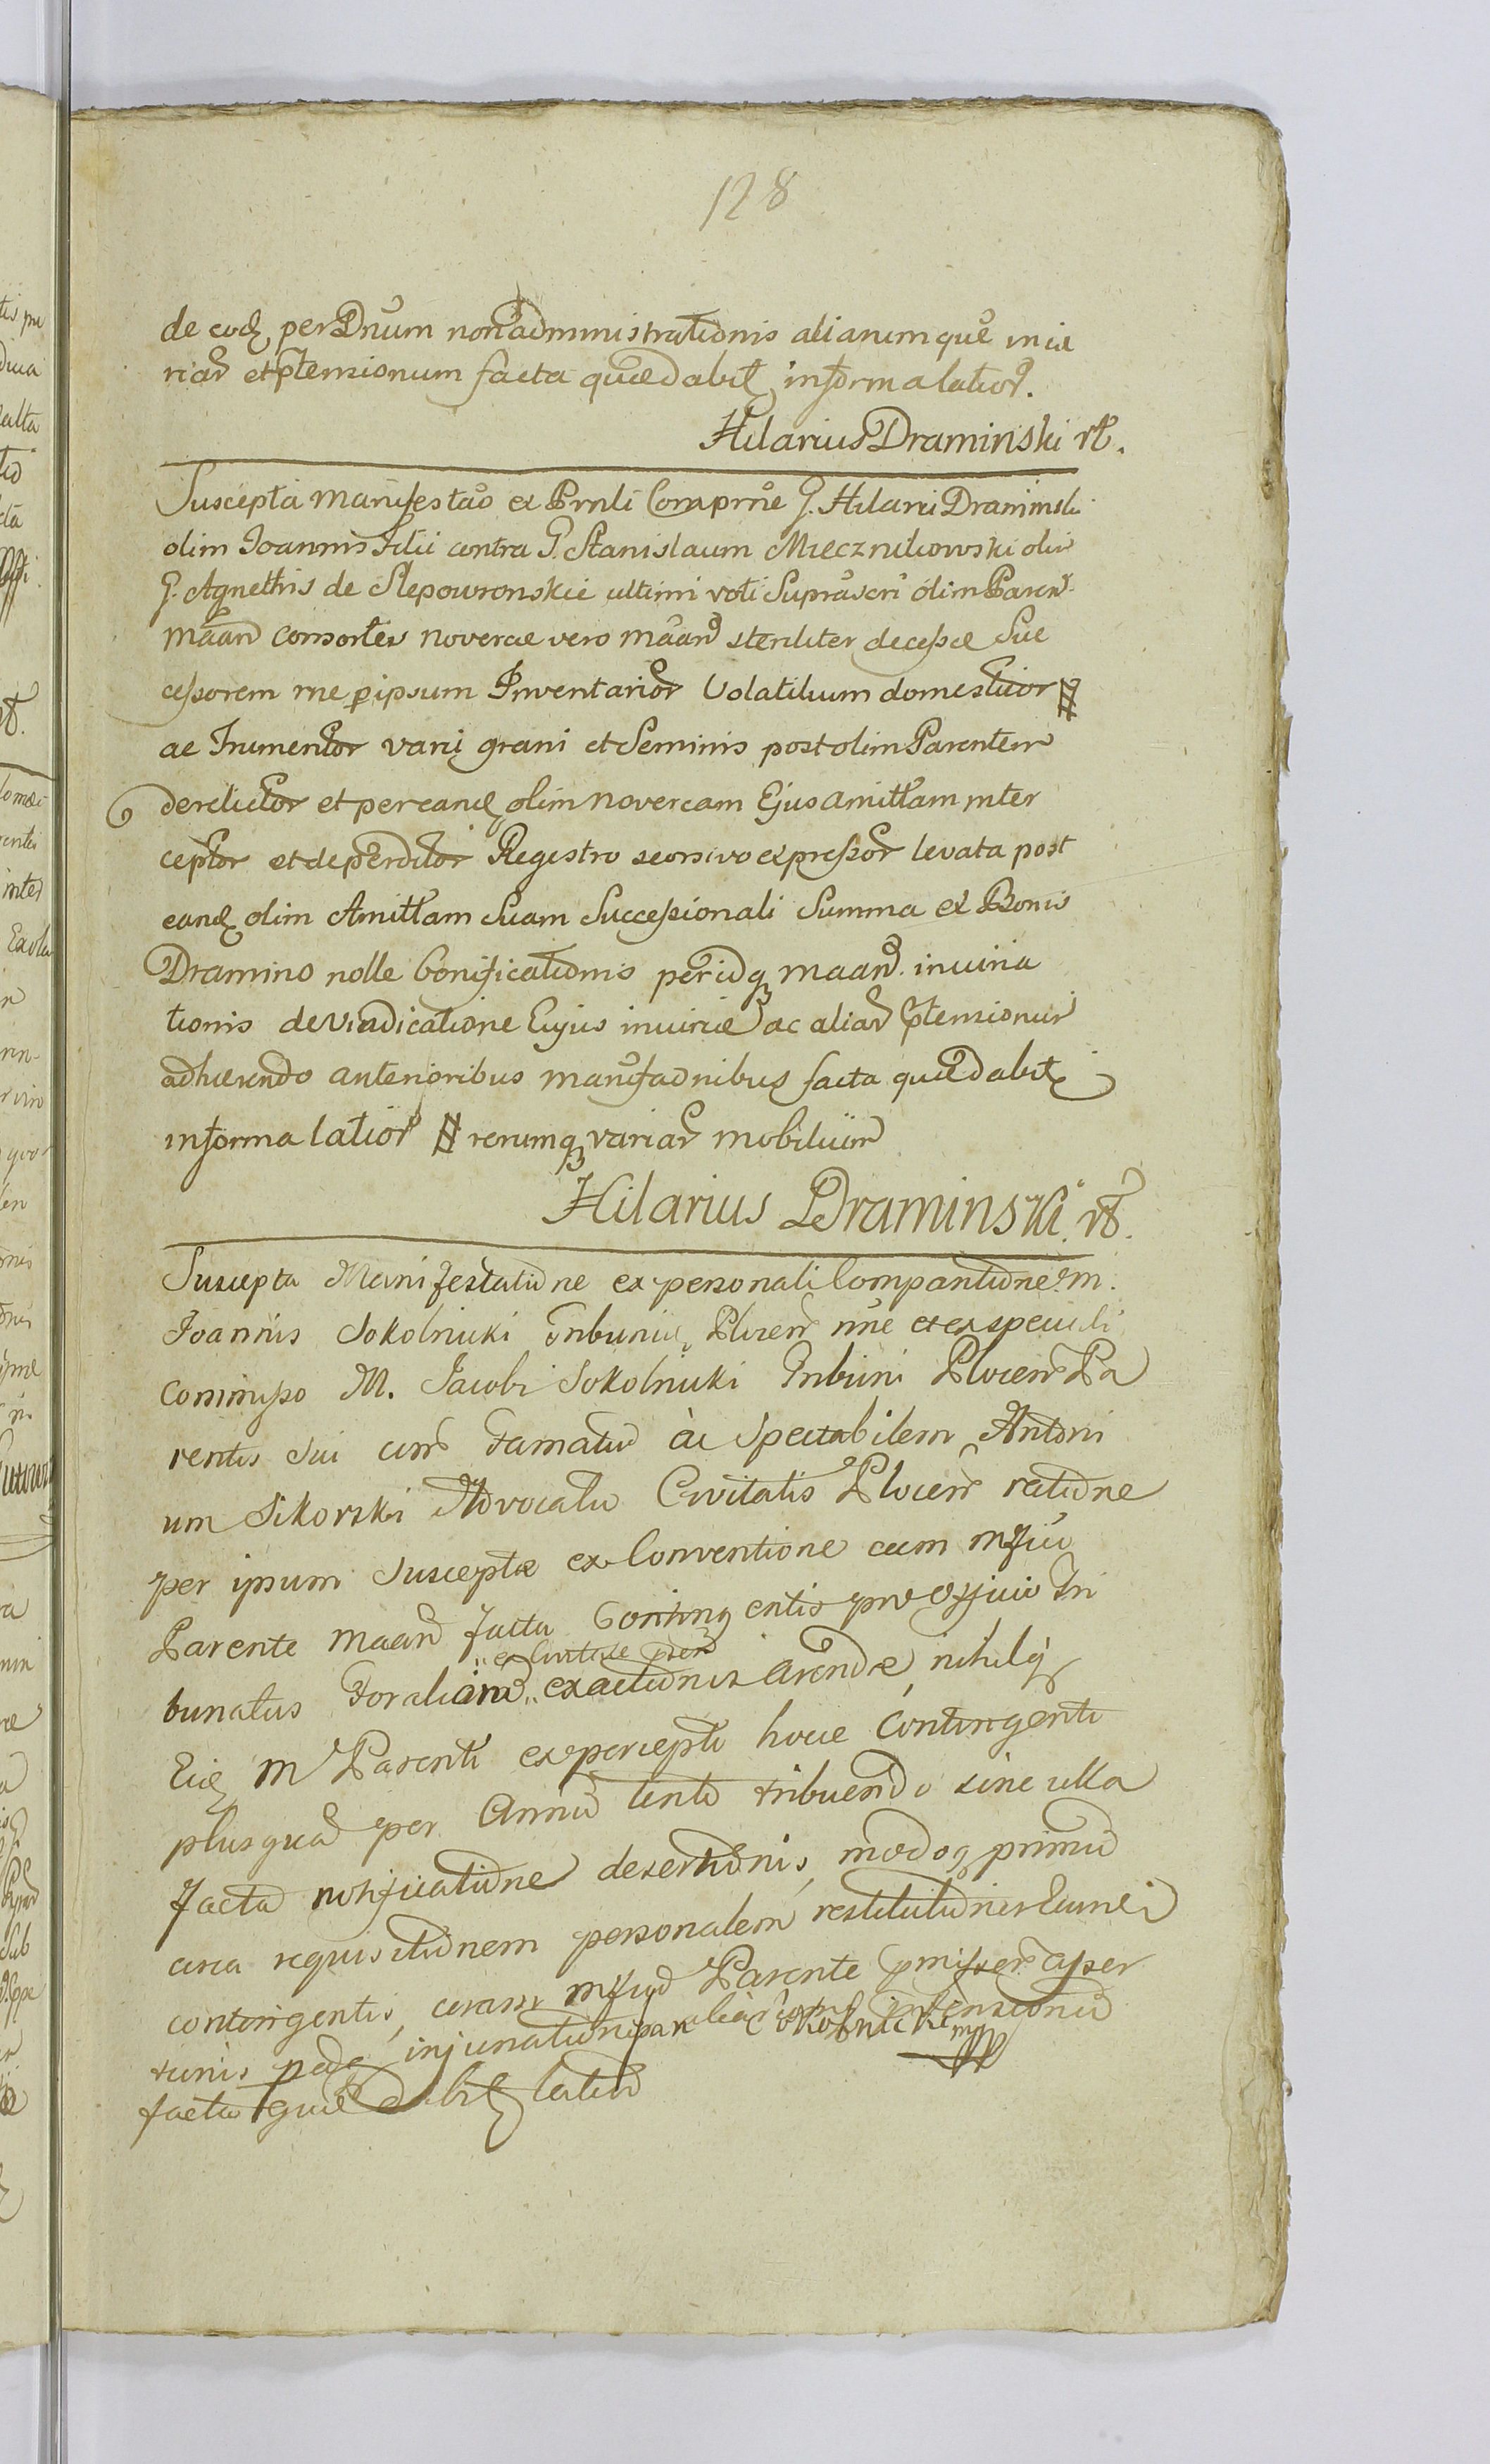 128
de eod per Dnum non administrationis aliarumque iniu
riar et ptensionum facta quae dabit informa latior.
Hilarius Draminski rt.
Suscepta manifestao ex Prnli Comprne G. Hilarii Draminski
olim Joannis Filii contra G. Stanislaum Miecznikowski olim
G. Agnethis de Slepowronskie ultimi voti Suprascri olim Paren
maan consortis novercae vero maan steriliter decessae Suc
cessorem rne p ipsum Inventarior Volatilium domesticor #
ac Frumentor varii grani et Seminis post olim Parentem
derelictor et per eand olim novercam Ejus amittam inter
ceptor et deperditor Registro seorsivo expressor levata post
eand olim Amittam Suam Successionali Summa ex Bonis
Dramino nolle bonificationis per idq maan iniuria
tionis de vindicatione Eujus iniuriae ac aliar ptensionum
adhaerendo anterioribus manifaonibus facta quae dabit
informa latiori # rerumq variar mobilium
Hilarius Draminski rt.
Suscepta Manifestatione ex personali Comparitione M.
Joannis Sokolnicki Tribunid Plocen nne et ex speciali
commisso M. Jacobi Sokolnicki Tribuni Plocen Pa
rentis sui cum Famatu ac Spectabilem Antoni
um Sikorski Advocatu Civitatis Plocen ratione
per ipsum susceptae ex Conventione cum mfico
Parente maan facta Contingentis pro officio Tri
" ex Civitate pden
bunatus Foralium " exactionis arendae, nihilq
Eid M Parenti ex percepto hocce Contingenti
plusqua per Annu tento tribuendo sine ulla
facta notificatione desertionis, modoq primu
circa requisitionem personalem restitutionis Eumdi
contingentis, coram mfico Parente pmissor asser
tionis pdq injuriationis aliar ptensionu
J Sokolnicki mpp
facta quae dabit latius